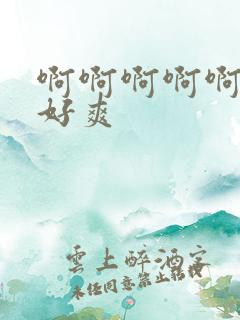 啊啊啊啊啊
好爽
雲上醉酒客
未经同意禁止转载